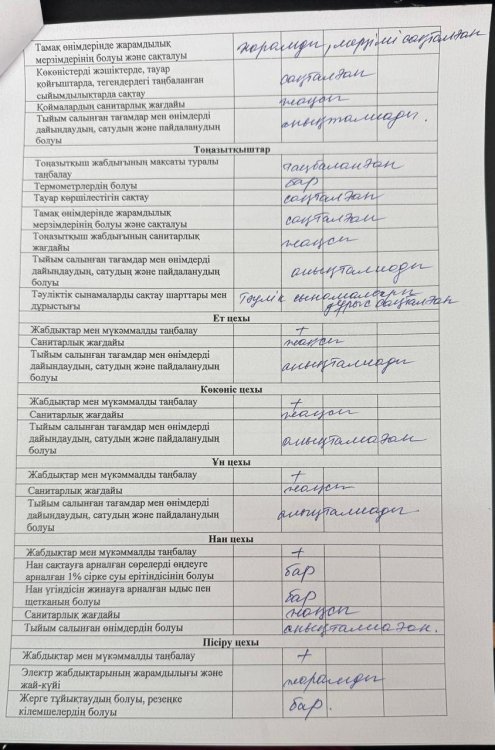 Тамақ өнімдерінде жарамдылық
мерзімдерінің болуы және сақталуы
жарамды, мерзімі сақталған
Көкөністерді жәшіктерде, тауар
қойғыштарда, тегендердегі таңбаланған
сыйымдылықтарда сақтау
сақталған
Қоймалардың санитарлық жағдайы
жақсы
Тыйым салынған тағамдар мен өнімдерді
дайындаудың, сатудың және пайдаланудың
болуы
анықталмады.
Тоңазытқыштар
Тоңазытқыш жабдығының мақсаты туралы
таңбалау
таңбаланған
Термометрлердің болуы
бар
Тауар көршілестігін сақтау
сақталған
Тамақ өнімдерінде жарамдылық
мерзімдерінің болуы және сақталуы
сақталған
Тоңазытқыш жабдығының санитарлық
жағдайы
жақсы
Тыйым салынған тағамдар мен өнімдерді
дайындаудың, сатудың және пайдаланудың
болуы
анықталмады
Тәуліктік сынамаларды сақтау шарттары мен
дұрыстығы
Тәулік сынамалары
дұрыс сақталған
Ет цехы
Жабдықтар мен мүкәммалды таңбалау
+
Санитарлық жағдайы
жақсы
Тыйым салынған тағамдар мен өнімдерді
дайындаудың, сатудың және пайдаланудың
болуы
анықталмады
Көкөніс цехы
Жабдықтар мен мүкәммалды таңбалау
+
Санитарлық жағдайы
жақсы
Тыйым салынған тағамдар мен өнімдерді
дайындаудың, сатудың және пайдаланудың
болуы
анықталмаған
Ұн цехы
Жабдықтар мен мүкәммалды таңбалау
+
Санитарлық жағдайы
жақсы
Тыйым салынған тағамдар мен өнімдерді
дайындаудың, сатудың және пайдаланудың
болуы
анықталмады.
Нан цехы
Жабдықтар мен мүкәммалды таңбалау
+
Нан сақтауға арналған сөрелерді өңдеуге
арналған 1% сірке суы ерітіндісінің болуы
бар
Нан үгіндісін жинауға арналған ыдыс пен
щетканың болуы
бар
Санитарлық жағдайы
жақсы
Тыйым салынған өнімдердің болуы
анықталмаған.
Пісіру цехы
Жабдықтар мен мүкәммалды таңбалау
+
Электр жабдықтарының жарамдылығы және
жай-күйі
жарамды
Жерге тұйықтаудың болуы, резеңке
кілемшелердің болуы
бар.